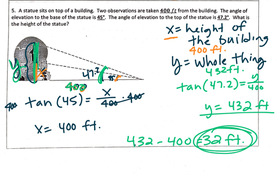 5. A statue sits on top of a building. Two observations are taken 400 ft from the building. The angle of
elevation to the base of the statue is 45°. The angle of elevation to the top of the statue is 47.2°. What is
the height of the statue?
x = height of
the building
400 ft.
y = whole thing
432 ft
tan(47.2) = y/400
y = 432 ft
y
x
47.2°
45°
400
400 · tan(45) = x/400 · 400
x = 400 ft.
432 - 400 = 32 ft.